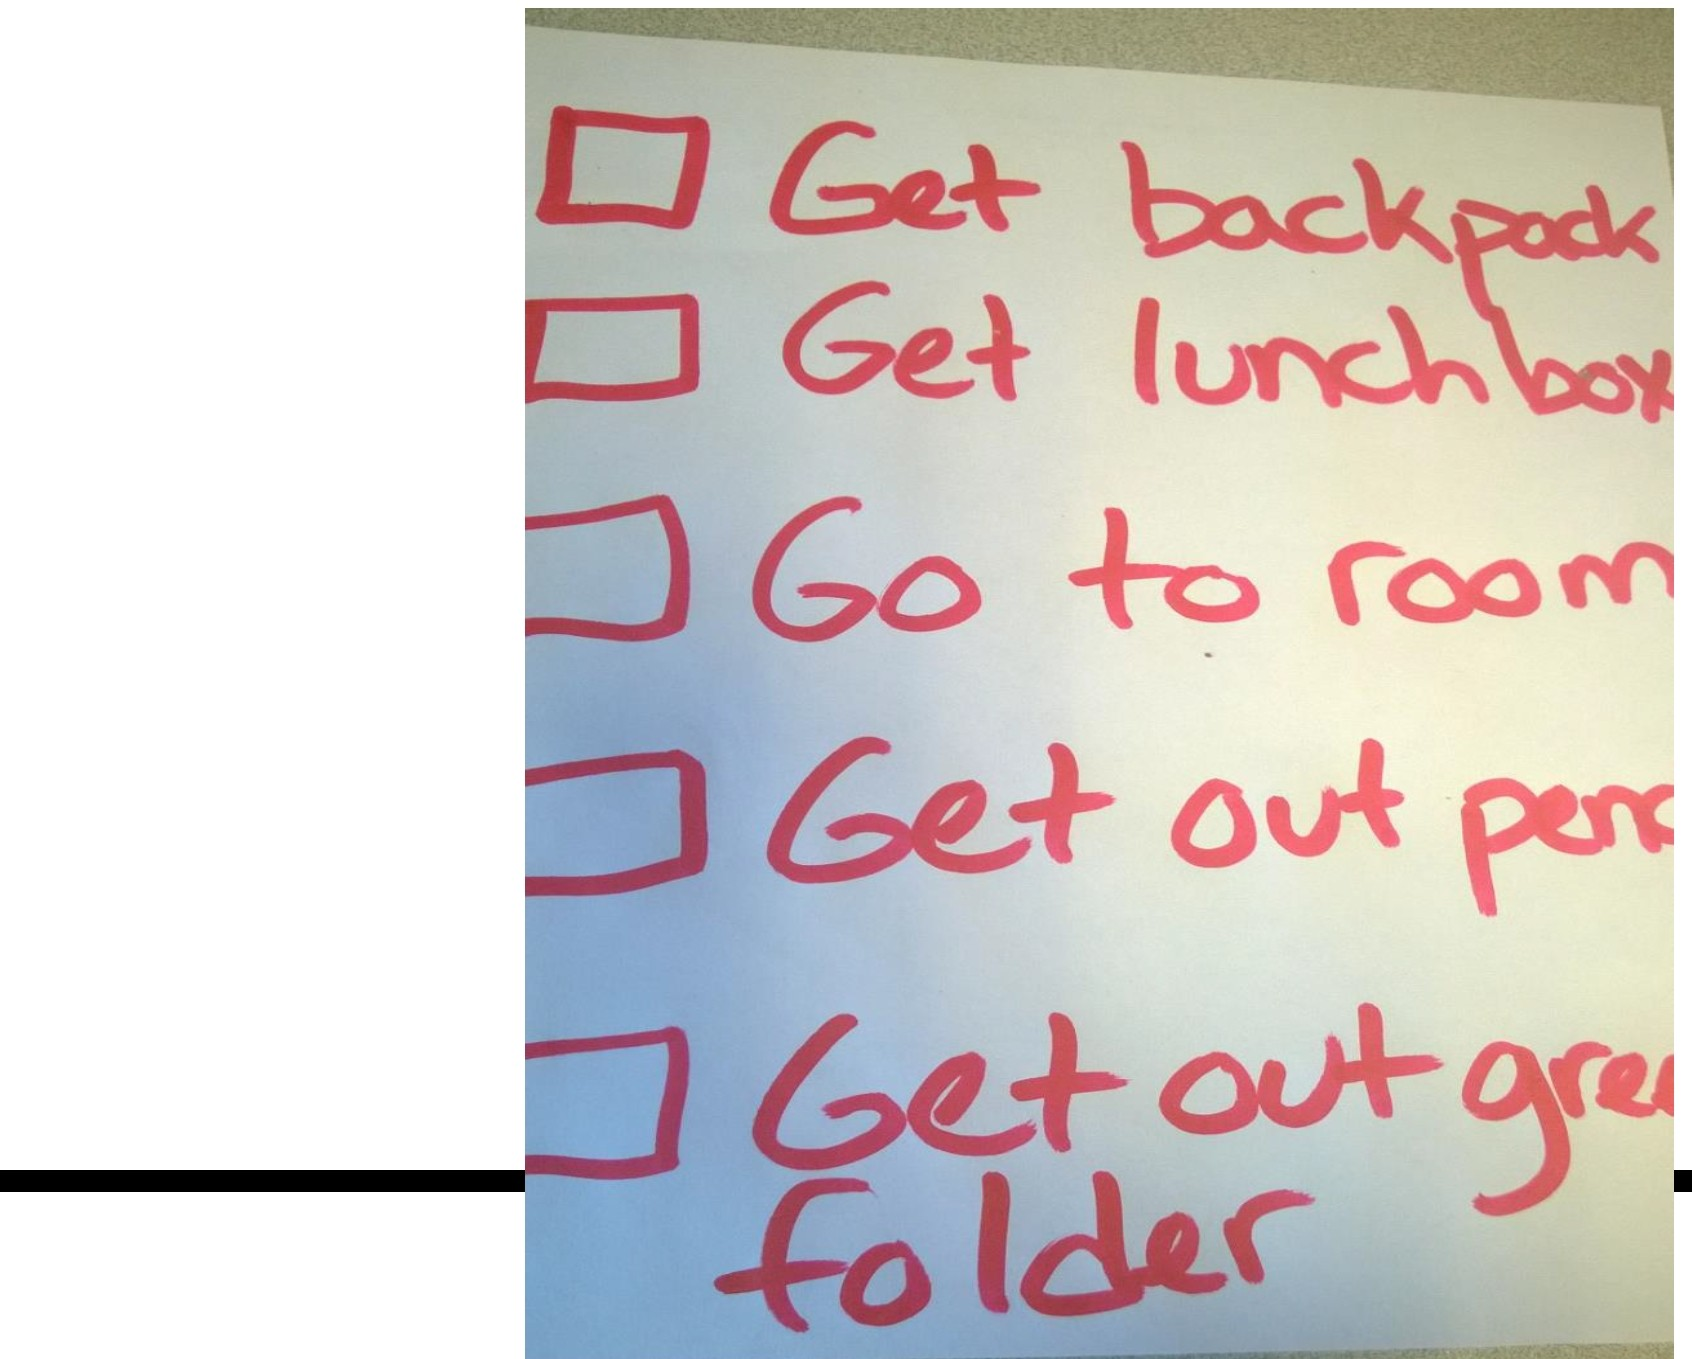 Get backpack
Get lunchbox
Go to room
Get out
Get out
folder